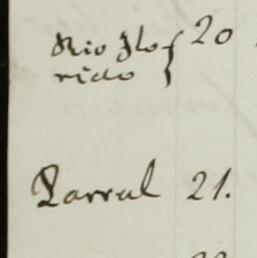 Rio Flo { 20
rido
Parral 21.